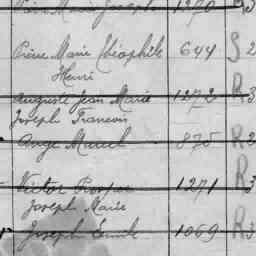 Marie Joseph 1270 R3
Pierre Marie Théophile 644 S2
Henri
Auguste Jean Marie 1272 R3
Joseph Francois
Ange Marcel 875 R2
Victor Prosper 1271 R3
Joseph Marie
Joseph Emile 1069 R3